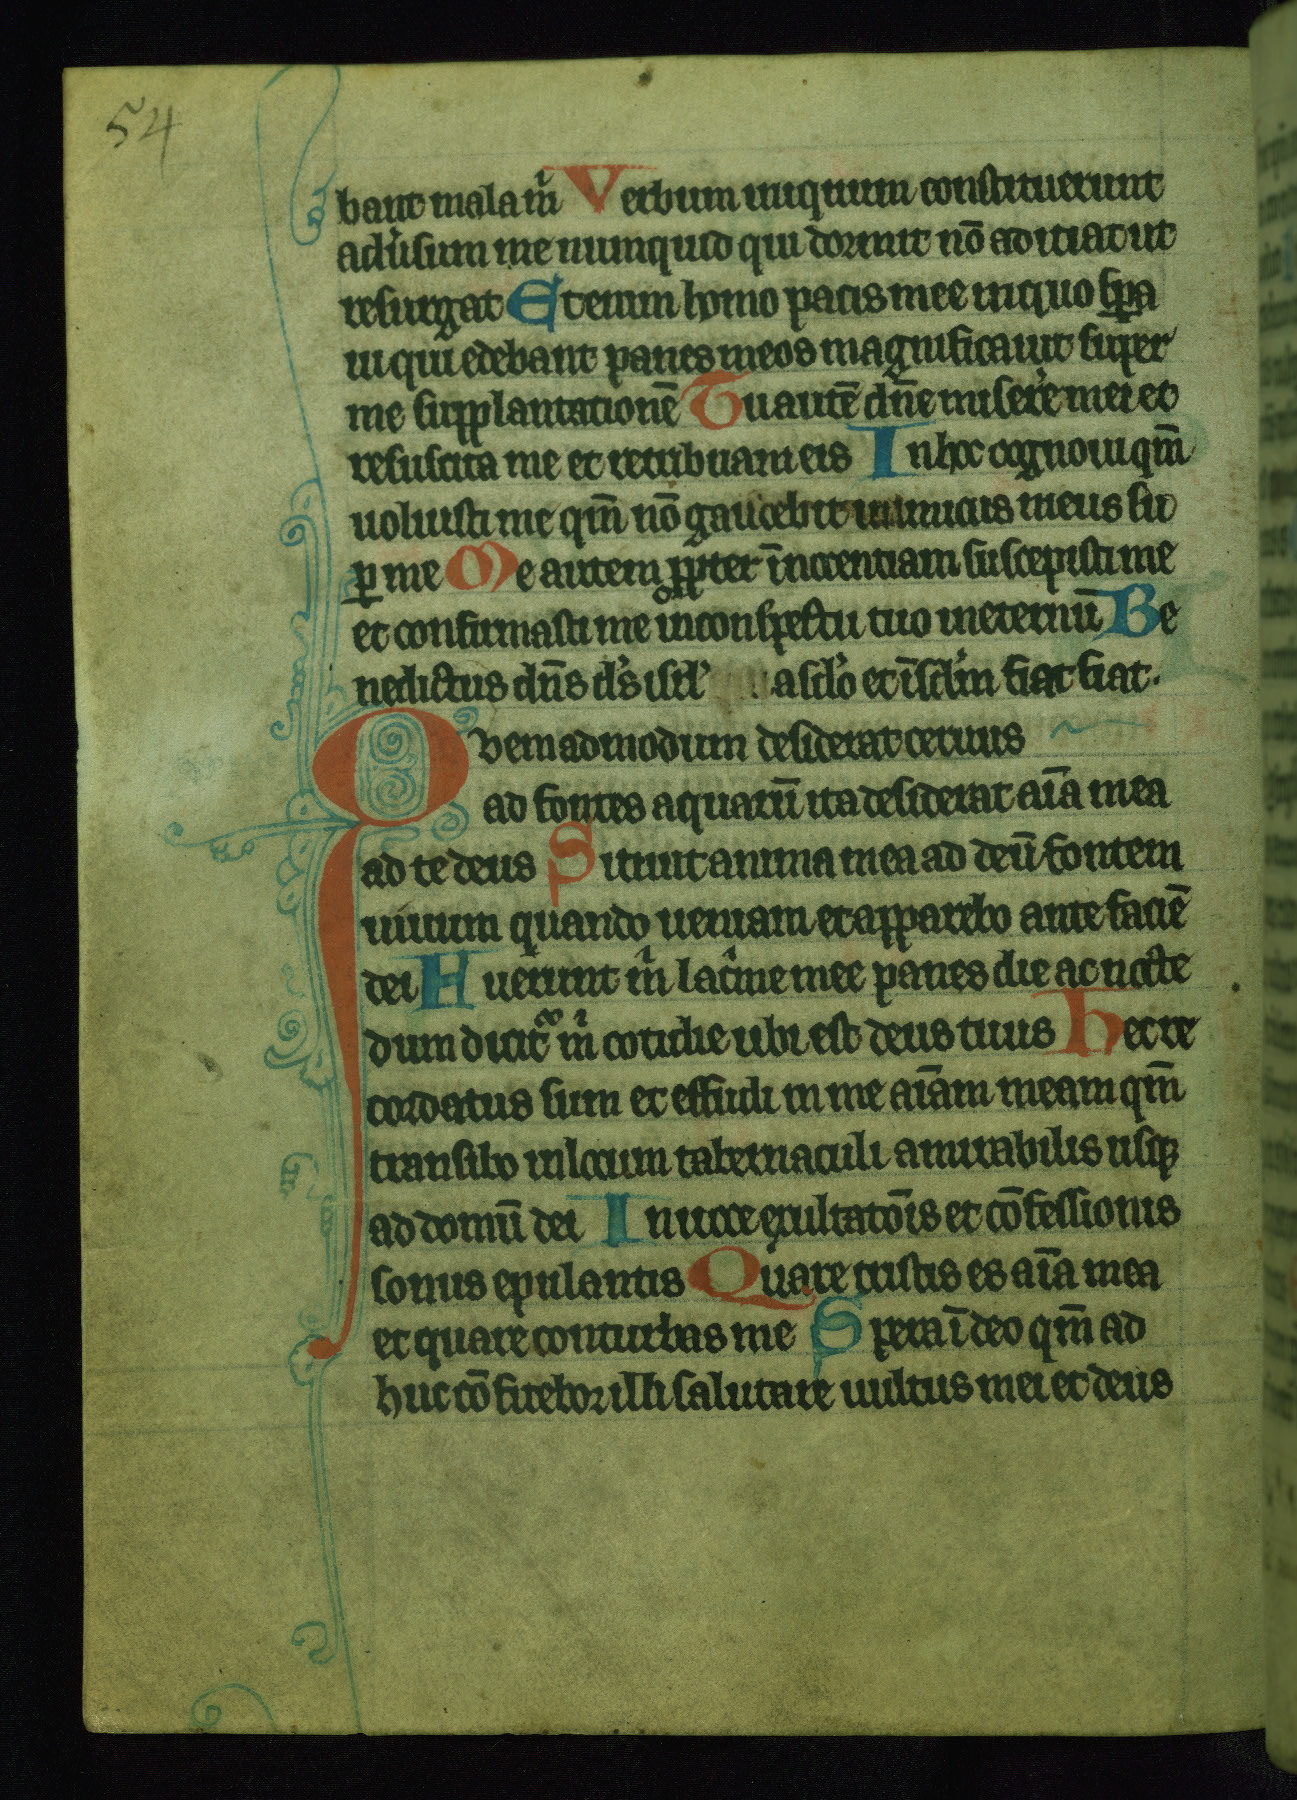 54
bant mala m̄ Verbum iniquum constituerunt
adūsum me numquid qui dormit nō adiciat ut
resurgat Etenim homo pacis mee inquo sp̄a
ui qui edebant panes meos magnificauit super
me supplantationē Tu autē dn̄e miserēre mei et
resuscita me et retribuam eis In hoc cognoui qm̄
uoluisti me qm̄ nō gaudebit inimicus meus su
ꝑ me Me autem ꝓpter īnocentiam suscepisti me
et confirmasti me in conspectu tuo in eternū Be
nedictus dn̄s ds̄ isrl̄ a sclo̅ et ī sclm̄ fiat fiat.
Quemadmodum desiderat ceruus
ad fontes aquarū ita desiderat aīa mea
ad te deus Sitiuit anima mea ad deū fontem
uiuum quando ueniam et apparebo ante faciē
dei Fuerunt m̄ lacͥme mee panes die ac nocte
dum dicit᷑ m̄ cotidie ubi est deus tuus Hec re
cordatus sum et effudi in me aīam meam qm̄
transibo in locum tabernaculi amirabilis usqꝫ
ad domū dei In uoce exultatōis et cōfessionis
sonus epulantis Quare tristis es aīa mea
et quare conturbas me Spera ī deo qm̄ ad
huc cōfitebor illi salutare uultus mei et deus